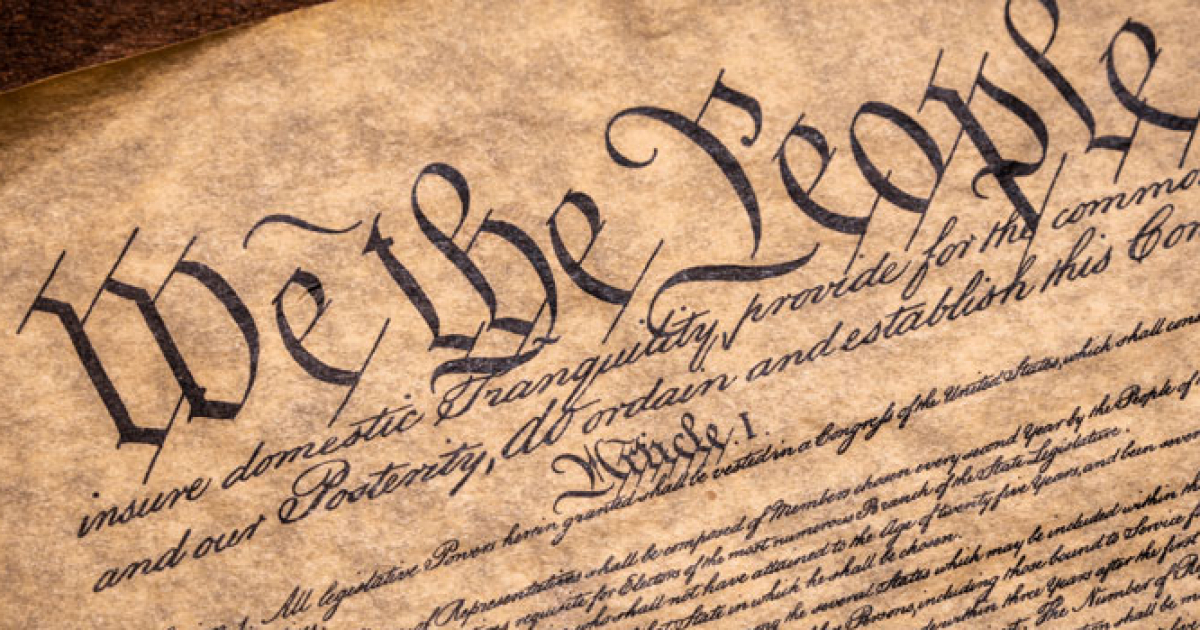 We the People
insure domestic Tranquility, provide for the common
and our Posterity, do ordain and establish this Con
Article. I.
All legislative Powers herein granted shall be vested in a Congress of the United States, which shall con
of Representatives shall be composed of Members chosen every second Year by the People of
requisite for Electors of the most numerous Branch of the State Legislature.
who shall not have attained to the Age of twenty five Years, and been
State in which he shall be chosen.
the several States which may be included within
Persons, including those bound to Service
within three Years after the first
The Number of